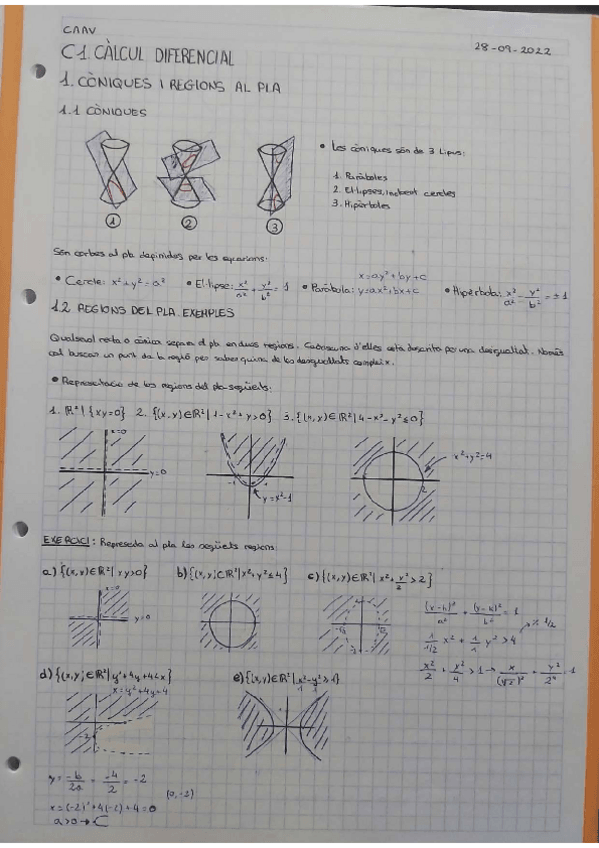 CAAV
28-09-2022
C1. CÀLCUL DIFERENCIAL
1. CÒNIQUES I REGIONS AL PLA
1.1 CÒNIQUES
• Les còniques són de 3 tipus:
1. Paràboles
2. El·lipses, incloent cercles
3. Hipèrboles
1 2 3
Són corbes al pla definides per les equacions:
• Cercle: x²+y²=a² • El·lipse: x²/a² + y²/b² = 1 • Paràbola: x=ay²+by+c y=ax²+bx+c • Hipèrbola: x²/a² - y²/b² = ±1
1.2 REGIONS DEL PLA. EXEMPLES
Qualsevol recta o cònica separa el pla en dues regions. Cadascuna d'elles està descrita per una desigualtat. Només
cal buscar un punt de la regió per saber quina de les desigualtats compleix.
• Representació de les regions del pla següets:
1. ℝ² | {xy=0} 2. {(x,y)∈ℝ² | 1-x²+y>0} 3. {(x,y)∈ℝ² | 4-x²-y²≤0}
x=0
y=0
-1
y=x²-1
x²+y²=4
2
EXERCICI: Representa al pla les següets regions:
a) {(x,y)∈ℝ² | xy>0} b) {(x,y)∈ℝ² | x²+y²≤4} c) {(x,y)∈ℝ² | x²+y²/2>2}
x=0
y=0
(x-h)²/a² + (y-k)²/b² = 1
1/1/2 x² + 1/1 y² > 4
x²/2 + y²/4 > 1 → x/(√2)² + y²/2² = 1
d) {(x,y)∈ℝ² | y²+4y+4<x} e) {(x,y)∈ℝ² | x²/1-y²/1≥1}
x=y²+4y+4
-2
y = -b/2a = -4/2 = -2
(0,-2)
x=(-2)²+4(-2)+4=0
a>0 → ⊂